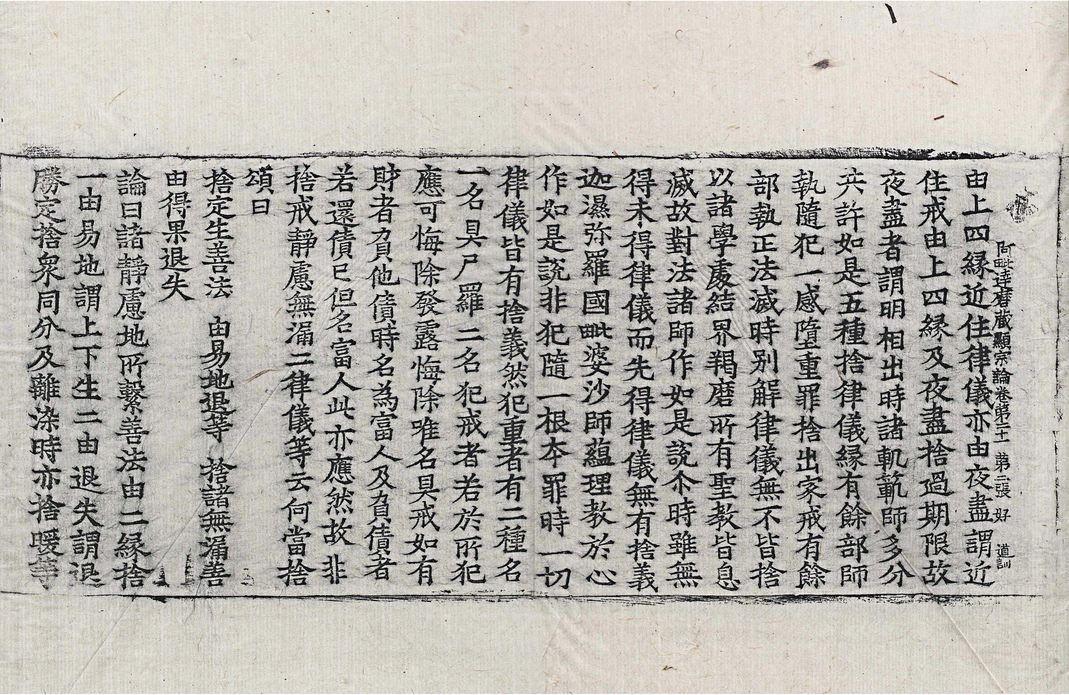 阿毗達磨藏顯宗論卷第二十一 第二張 好 道訓
由上四緣近住律儀亦由夜盡謂近
住戒由上四緣及夜盡捨過期限故
夜盡者謂明相出時諸軌範師多分
共許如是五種捨律儀緣有餘部師
執隨犯一感墮重罪捨出家戒有餘
部執正法滅時別解律儀無不皆捨
以諸學處結界羯磨所有聖教皆息
滅故對法諸師作如是說尒時雖無
得未得律儀而先得律儀無有捨義
迦濕弥羅國毗婆沙師蘊理教於心
作如是說非犯隨一根本罪時一切
律儀皆有捨義然犯重者有二種名
一名具尸羅二名犯戒者若於所犯
應可悔除發露悔除唯名具戒如有
財者負他債時名為富人及負債者
若還債已但名富人此亦應然故非
捨戒靜慮無漏二律儀等云何當捨
頌曰
捨定生善法 由易地退等 捨諸無漏善
由得果退失
論曰諸靜慮地所繫善法由二緣捨
一由易地謂上下生二由退失謂退
勝定捨衆同分及離染時亦捨煖等